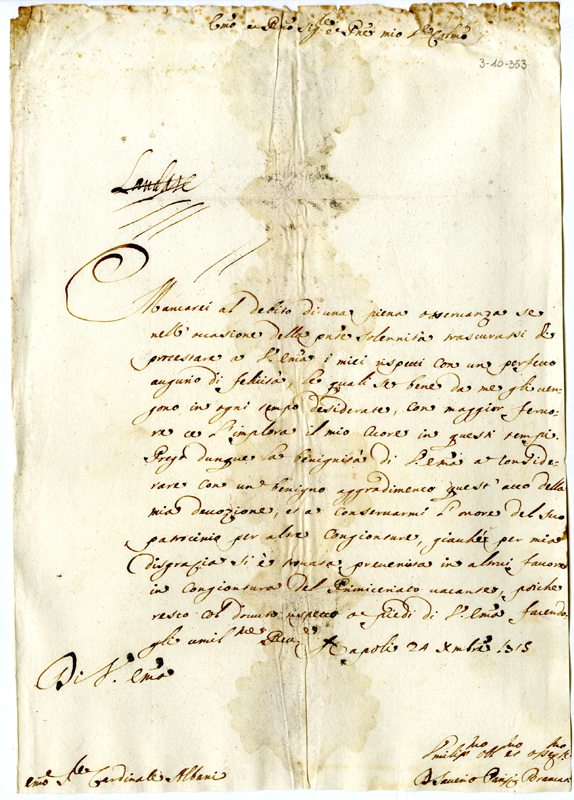 Emo e Rmo Sigre e Prne mio Sre Colmo
3-10-353
Laudese
Mancarei al debito di una piena osservanza se
nell' occasione della pnte solennità trascurassi di
protestare a V. Emza i miei rispetti con un perfetto
augurio di felicità, le quali se bene da me gli ven-
gono in ogni tempo desiderate, con maggior fervo-
re ce l'implora il mio cuore in questi tempi.
Prego dunque la benignità di V. Emza a conside-
rare con un benigno aggradimento quest' atto della
mia devozione, et a conservarmi l'onore del suo
patrocinio per altre congionture, giache per mia
disgrazia si è trovata prevenuta in altrui favore
in congiontura del Primiceriato vacante, poiche
resto col dovuto rispetto a piedi di V. Emza facendo-
gli umilme Revza Napoli 24 Xmbre 1715
Di V. Emza
Emo Sre Cardinale Albani
Umilismo Devmo et Obbmo